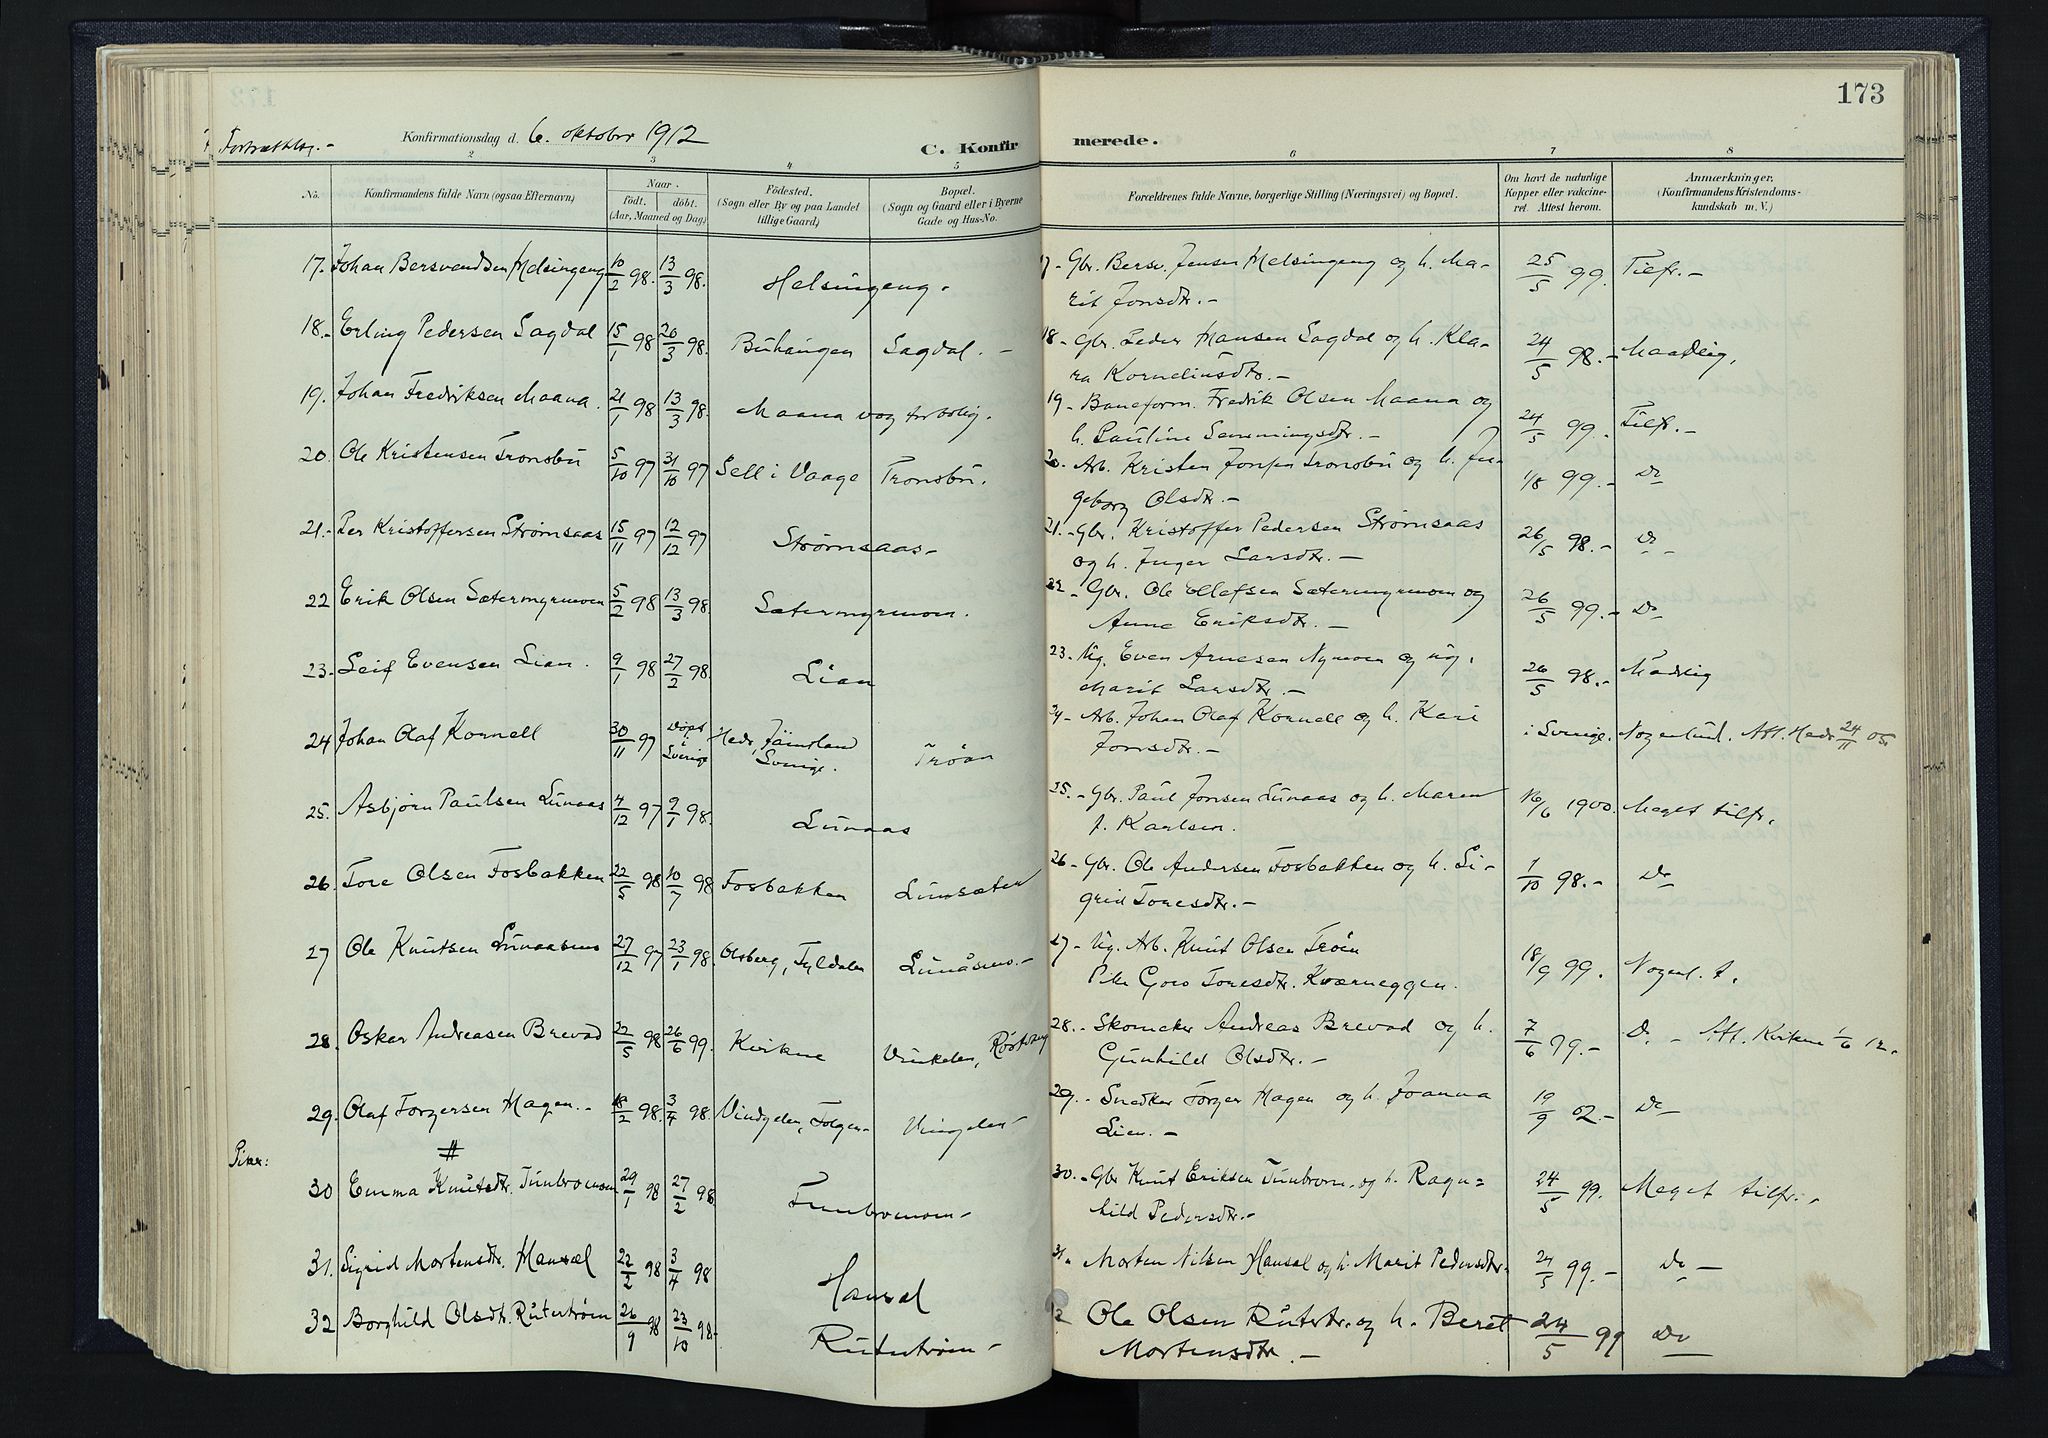 173
Konfirmationsdag d. 6. oktober 1912
C. Konfirmerede.
2 3 4 5 6 7 8
No. Konfirmandens fulde Navn (ogsaa Efternavn) Naar født. døbt. (Aar, Maaned og Dag) Fødested. (Sogn eller By og paa Landet tillige Gaard) Bopæl. (Sogn og Gaard eller i Byerne Gade og Hus-No. Forældrenes fulde Navne, borgerlige Stilling (Næringsvei) og Bopæl. Om havt de naturlige Kopper eller vakcineret. Attest herom. Anmærkninger, (Konfirmandens Kristendomskundskab m. V.)
17. Johan Bersvendsen Helsingeng 10/2 98. 13/3 98. Helsingeng. Gbr. Bersv. Jensen Helsingeng og h. Ma- 25/5 99. Tilfr. -
rit Jonsdtr. -
18. Erling Pedersen Sagdal 15/1 98 20/3 98. Buhaugen Sagdal. - 18 - Gbr. Peder Hansen Sagdal og h. Kla- 24/5 98. - Maadelig.
ra Korneliusdtr. -
19. Johan Fredriksen Maana. 21/1 98 13/3 98. Maana vogterbolig. 19 - Baneform. Fredrik Olsen Maana og 24/5 99. Tilfr. -
h. Pauline Semmingsdtr. -
20. Ole Kristensen Tronsbu 5/10 97 31/10 97 Sell i Vaage Tronsbu. 20. Arb. Kristen Tronsbu og h. In- 1/8 99. - Do
geborg Olsdtr. -
21. - Per Kristoffersen Strømsaas 15/11 97 12/12 97 Strømsaas - 21. - Gbr. Kristoffer Pedersen Strømsaas 26/5 98. - Do -
og h. Inger Larsdtr. -
22 Erik Olsen Sætermyrmoen 5/2 98 13/3 98. Sætermyrmoen. 22 - Gbr. Ole Ellefsen Sætermyrmoen og 26/5 99. - Do
Anne Eriksdtr. -
23. Leif Evensen Lian. 9/1 98 27/2 98. Lian 23. Ug. Even Arnesen Nymoen og ug. 26/5 98. - Maadelig
Marit Larsdtr. -
24 Johan Olaf Kornell 30/11 97 Døpt i Sverige Hede, Jämtland Sverige. Trøan 24 - Arb. Johan Olaf Kornell og h. Kari i Sverige. Nogenlund. Att. Hede 24/11 05.
Jonsdtr. -
25. Asbjørn Paulsen Lunaas 4/12 97 9/1 98. Lunaas 25. - Gbr. Paul Jonsen Lunaas og h. Maren 16/6 1900. Meget tilfr.
f. Karlsen.
26. Tore Olsen Fosbakken 22/5 98 10/7 98 Fosbakken Lunsæter 26 - Gbr. Ole Andersen Fosbakken og h. Si- 1/10 98. - Do
grid Toresdtr. -
27 Ole Knutsen Lunaasmo 27/12 97 23/1 98. Tyldalen Lunåsmo. - 27 - Ug. Arb. Knut Olsen Trøen 18/9 99. Nogenl. t.
Pike Goro Toresdtr. Kværneggen.
28. Oskar Andreasen Brevad 22/5 98 26/6 99. Kvikne Vinkelen, 28. - Skomaker Andreas Brevad og h. 7/6 99. - Do - Att. Kvikne 1/6 12.
Gunhild Olsdtr. -
29. Olaf Torgersen Hagen. - 18/2 98. 3/4 98. Vindgelen, Tolgen - Vingelen - 29. - Snedker Torger Hagen og h. Joanna 19/9 02. - Do
Lien. -
#
Piker:
30 Emma Knutsdtr. Tunbromoen 29/1 98 27/2 98. Tunbromoen - 30. - Gbr Knut Eriksen Tunbrom. og h. Ragn= 24/5 99. Meget tilfr. -
hild Pedersdtr. -
31. Sigrid Mortensdtr. Hansæl 22/2 98 3/4 98 Hansæl 31. Morten Nilsen Hansæl og h. Marit Pedersdtr. 24/5 99. - Do -
32 Borghild Olsdtr. Rutertrøen 26/9 98 23/10 98. Rutertrøen - Ole Olsen Rutertr. og h. Beret 24/5 99 Do
Mortensdtr. -